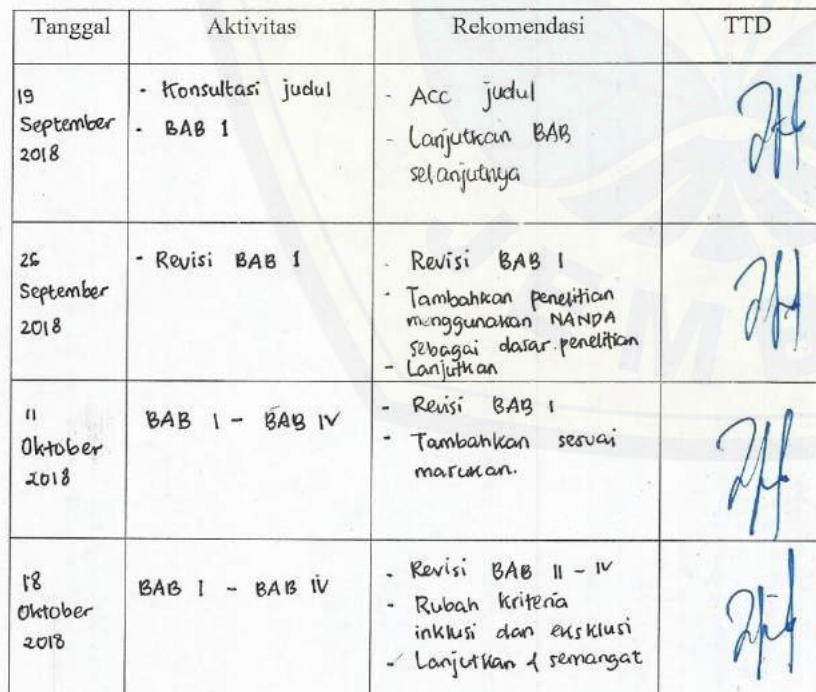 Tanggal Aktivitas Rekomendasi TTD
19 September 2018
- Konsultasi judul
- BAB 1
- Acc judul
- Lanjutkan BAB
selanjutnya
26 September 2018
- Revisi BAB 1
- Revisi BAB I
- Tambahkan penelitian
menggunakan NANDA
sebagai dasar penelitian
- Lanjutkan
11 Oktober 2018
BAB I - BAB IV
- Revisi BAB I
- Tambahkan sesuai
masukan.
18 Oktober 2018
BAB I - BAB IV
- Revisi BAB II - IV
- Rubah kriteria
inklusi dan eksklusi
- Lanjutkan & semangat